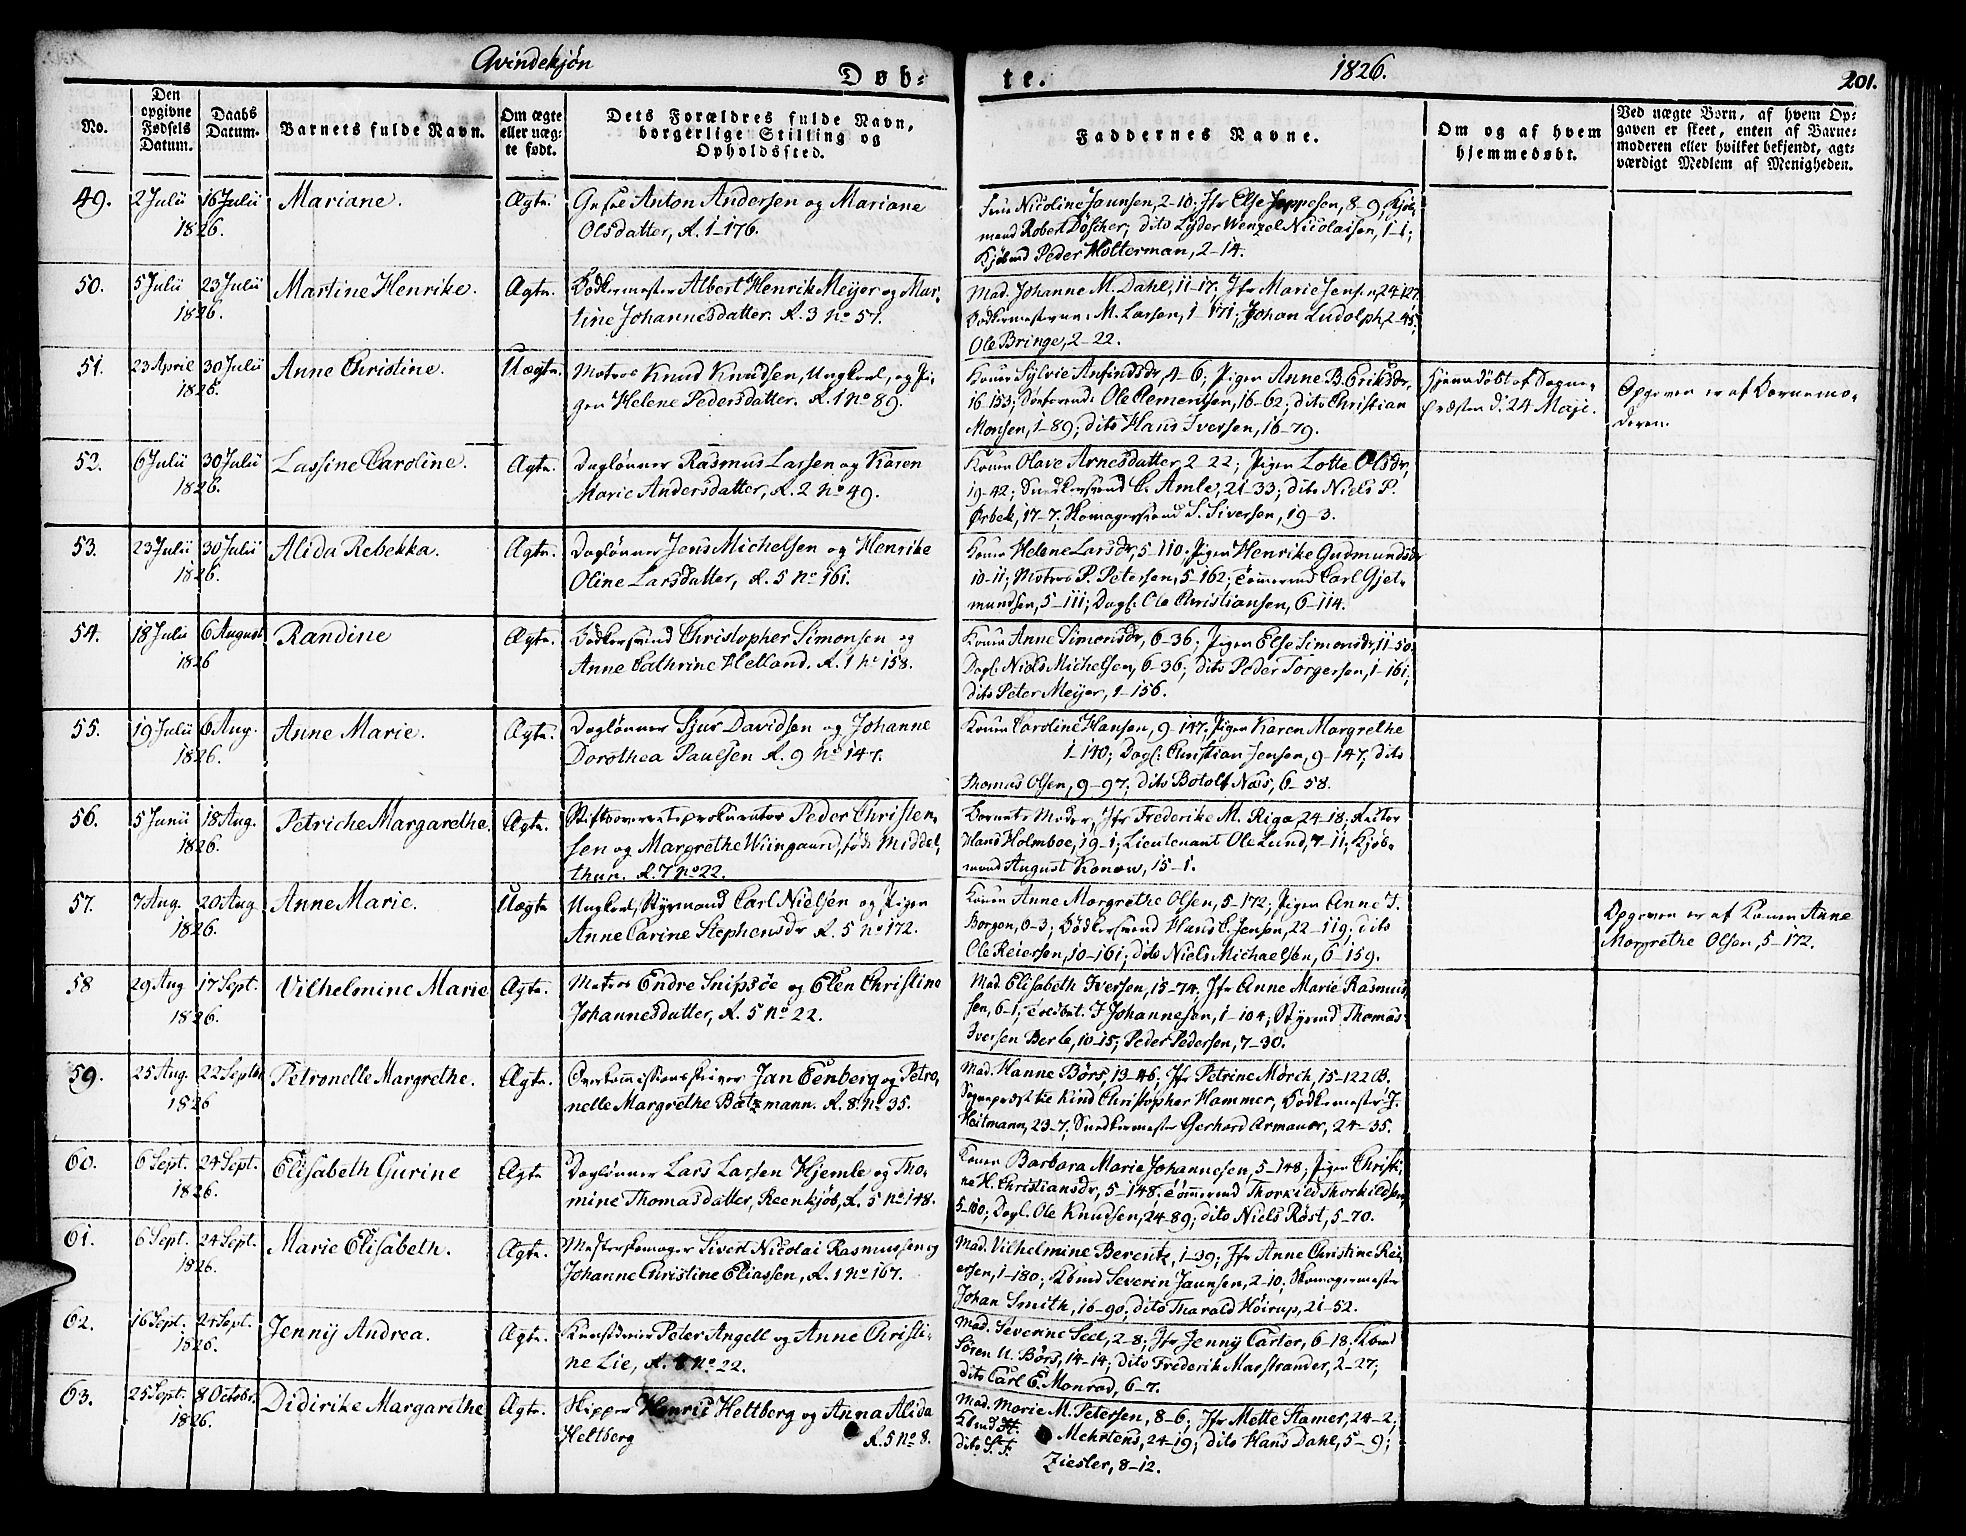 Qvindekjøn
Døb-
te.
1826.
201.
No.
Den opgivne Fødsels Datum.
Daabs Datum.
Barnets fulde Navn.
Om ægte eller uæg- te født.
Dets Forældres fulde Navn, borgerlige Stilling og Opholdssted.
Faddernes Navne.
Om og af hvem hjemmedøbt.
Ved uægte Børn, af hvem Op- gaven er skeet, enten af Barne- moderen eller hvilket bekjendt, agt- værdigt Medlem af Menigheden.
49. 2 Julii 16 Julii Mariane. Ægte.
1826.
Anton Andersen og Mariane
Olsdatter, R. 1-176.
Nicoline Jaunsen, 2-10; Jfr Else Jeppesen, 8-9; Kjøb-
mand Robert Döscher; dito Lyder Wenzel Nicolaisen, 1-1;
Kjøbmd Peder Holterman, 2-14.
50. 5 Julii 23 Julii Martine Henrike. Ægte.
1826.
Bødkermester Albert Henrik Meyer og Mar-
tine Johannesdatter. R. 3 No 57.
Mad. Johanne M. Dahl, 11-17; Jfr Marie Jensen, 24-127.
Bødkermester M. Larsen, 1-171; Johan Ludolph, 2-45;
Ole Bringe, 2-22.
51. 23 April 30 Julii Anne Christine. Uægte.
1826.
Matros Knud Knudsen, Ungkarl, og Pi-
gen Helene Pedersdatter. R. 1 No 89.
Konen Sylvie Anfindsdr, 4-6; Pigen Anne B. Eriksdr,
16-153; Ole Clementsen, 16-62; dito Christian
Monsen, 1-89; dito Hans Iversen, 16-79.
Hjemmedøbt af Sogne-
præsten d. 24 Maji.
Opgaven er af Barnemo-
deren.
52. 6 Julii 30 Julii Lassine Caroline. Ægte.
1826.
Daglønner Rasmus Larsen og Karen
Marie Andersdatter, R. 2 No 49.
Konen Olave Arnesdatter, 2-22; Pigen Lotte Olsdr,
19-42; Snedkersvend C. Amle, 21-33; dito Niels P.
Ørbek, 17-7; Skomagersvend S. Siversen, 19-3.
53. 23 Julii 30 Julii Alida Rebekka. Ægte.
1826.
Daglønner Jens Michelsen og Henrike
Oline Larsdatter, R. 5 No 161.
Konen Helene Larsdr, 5-110. Pigen Henrike Gudmundsdr
10-11; Matros P. Petersen, 5-162; Tømmermd Carl Gjet-
mundsen, 5-111; Dagl: Ole Christiansen, 6-114.
54. 18 Julii 6 August Randine Ægte.
1826
Bødkersvend Christopher Simonsen og
Anne Cathrine Helland. R. 1 No 158.
Konen Anne Simonsdr, 6-36; Pigen Else Simonsdr, 11-50.
Dagl: Niels Michelsen, 6-36; dito Peder Torgersen, 1-161;
dito Peter Meyer, 1-156.
55. 19 Julii 6 Aug. Anne Marie. Ægte.
1826.
Daglønner Sjur Davidsen og Johanne
Dorothea Paulsen R. 9 No 147.
Konen Caroline Hansen, 9-147; Pigen Karen Margrethe
1-140; Dagl: Christian Jensen, 9-147; dito
Thomas Olsen, 9-97; dito Botolf Næs, 6-58.
56. 5 Junii 18 Aug. Petriche Margarethe. Ægte.
1826.
Stiftsoverretsprokurator Peder Christen-
sen og Margrethe Wiingaard, født Middel-
thun. R. 7 No 22.
Barnets Moder, Jfr Frederike M. Riga, 24-18;
Hans Holmboe, 19-1; Lieutenant Ole Lund, 7-11; Kjøb-
mand August Konow, 15-1.
57. 7 Aug. 20 Aug Anne Marie. Uægte
1826.
Ungkarl, Styrmand Carl Nielsen og Pigen
Anne Carine Stephensdr R. 5 No 172.
Konen Anne Margrethe Olsen, 5-172; Pigen Anne T.
Borgen, 6-3; Bødkersvend Hans C. Jensen, 22-119; dito
Ole Reiersen, 10-161; dito Niels Michaelsen, 6-159.
Opgaven er af Konen Anne
Margrethe Olsen, 5-172.
58 29 Aug 17 Sept. Vilhelmine Marie Ægte.
1826.
Matros Endre Snipsöe og Elen Christine
Johannesdatter, R. 5 No 22.
Mad. Elisabeth Iversen, 15-74; Jfr Anne Marie Rasmus-
sen, 6-1; J Johannesen, 1-104; Styrmd Thomas
Iversen Berle, 10-15; Peder Pedersen, 7-30.
59. 25 Aug. 22 Septbr Petronelle Margrethe. Ægte.
1826
Overkommissionsskriver Jan Eenberg og Petro-
nelle Margrethe Batzmann. R. 8 No 35.
Mad. Hanne Börs, 13-46; Jfr Petrine Mörch, 15-122 B.
Sognepræst til Kind Christopher Hammer, Bødkermester J.
Heitmann, 23-7; Snedkermester Gerhard Armauer, 24-35.
60. 6 Sept. 24 Sept. Elisabeth Gurine Ægte
1826.
Dagløner Lars Larsen Hjemle og Tho-
mine Thomasdatter, Reenkjøb, R. 5 No 148.
Konen Barbara Marie Johannesen, 5-148; Pigen Christi-
ne H. Christiansdr, 5-148. Tømmermd Thorkild Thorkildsen,
5-100; Dagl. Ole Knudsen, 24-89; dito Niels Röst, 5-70.
61. 6 Sept. 24 Sept. Marie Elisabeth. Ægte.
1826.
Mesterskomager Sivert Nicolai Rasmussen og
Johanne Christine Eliassen, R. 1 No 167.
Mad. Vilhelmine Berentz, 1-39; Jfr Anne Christine Rei-
ersen, 1-180; Kbmd Severin Jaunsen, 2-10; Skomagermester
Johan Smith, 16-90; dito Tharald Höirup, 21-52.
62. 16 Sept. 24 Sept. Jenny Andrea. Ægte.
1826.
Peter Angell og Anne Christi-
ne Lie, R. 8 No 22.
Mad. Severine Seel, 2-8; Jfr Jenny Carter, 6-18; Kbmd
Sören U. Börs, 14-14; dito Frederik Marstrander, 2-27;
dito Carl E. Monrad, 6-7.
63. 25 Sept. 8 Octobr. Didirike Margarethe Ægte.
1826.
Skipper Henric Heltberg og Anna Alida
Heltberg R. 5 No 8.
Mad. Marie M. Petersen, 8-6; Jfr Mette Stamer, 24-2;
Kbmd H. Mehrtens, 24-19; dito Hans Dahl, 5-9;
dito S. F. Ziesler, 8-12.